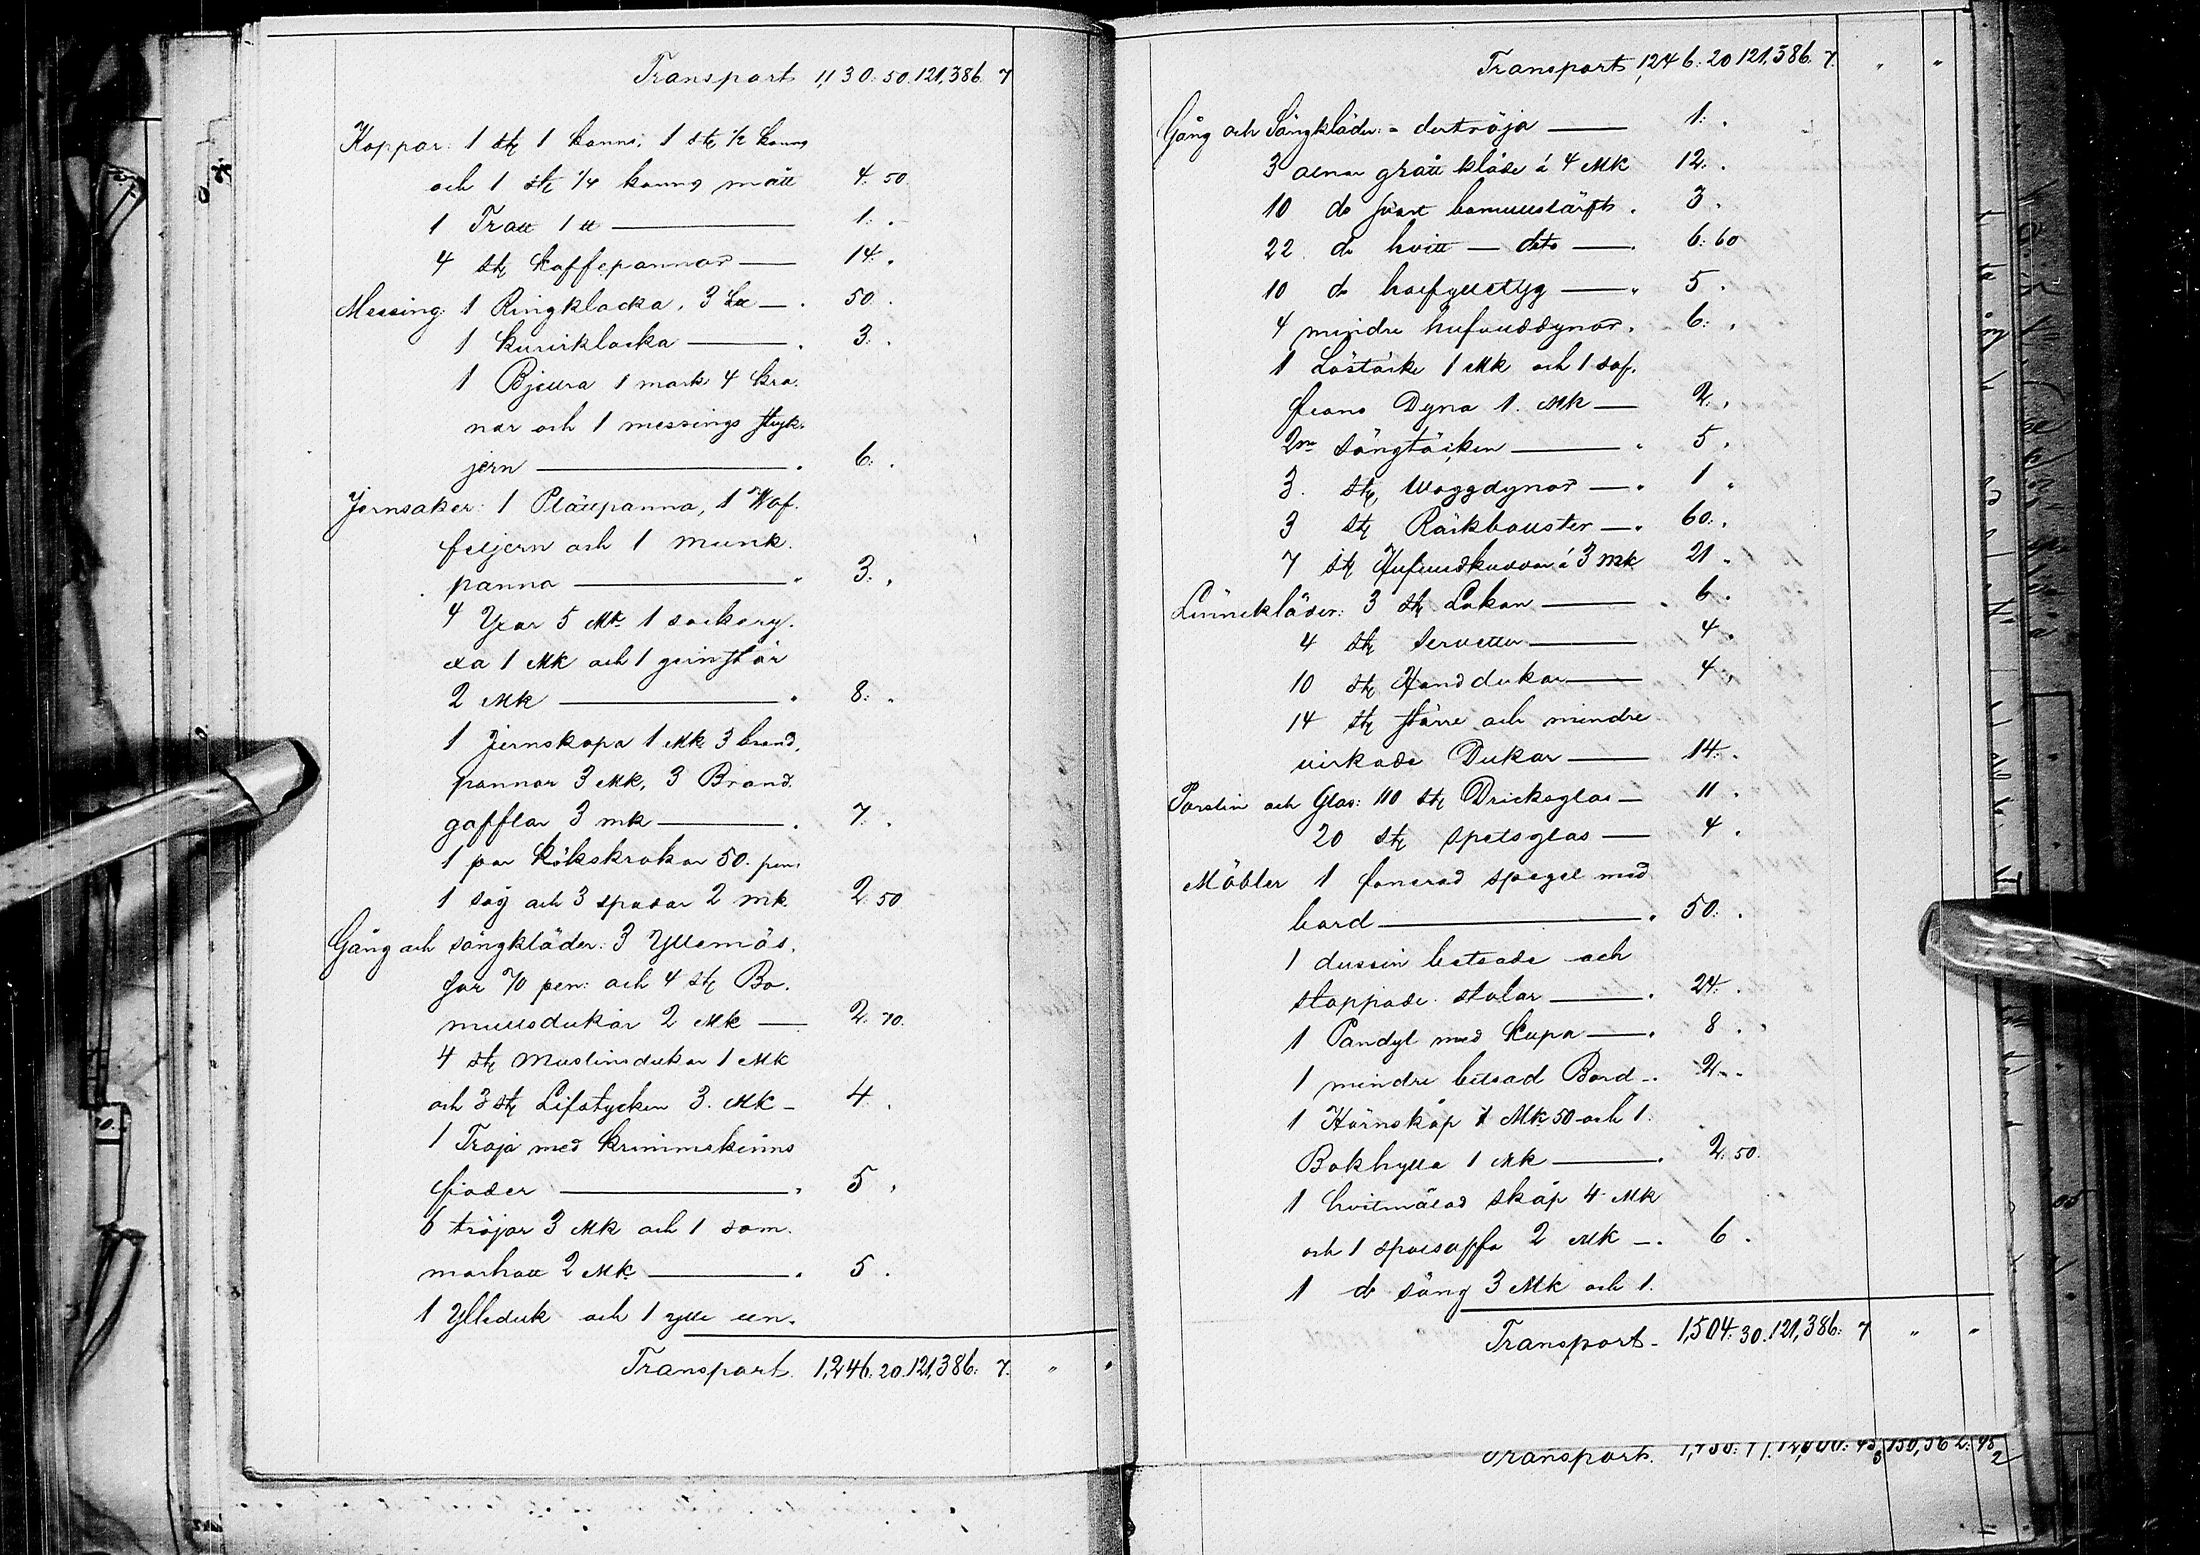 Transport 1,130: 50. 121,386. 7
Koppar: 1 st. 1 kanns, 1 st. 1/2 kanns
och 1 st. 1/4 kanns mått 4. 50
1 Tratt 1 tt 1: .
4 st. kaffepannor 14: .
Messing: 1 Ringklocka, 3 50 .
1 kurirklocka 3: .
1 Bjellra 1 mark 4 kra-
nar och 1 messings stryk-
jern 6: .
Jernsaker: 1 Plättpanna, 1 Wof-
feljern och 1 munk-
panna 3: .
4 Yxor 5 Mk 1 sockery-
xa 1 Mk och 1 grinstör
2 Mk 8: .
1 Jernskopa 1 Mk 3 brand-
pannor 3 Mk, 3 Brand-
gafflar 3 mk 7: .
1 par kökskrokar 50. pen:
1 såg och 3 spadar 2 mk 2. 50
Gång och sängkläder: 3 Yllemös-
sor 70 pen: och 4 st. Bo-
mullsdukar 2 Mk 2. 70.
4 st. muslinsdukar 1 Mk
och 3 st. Lifstycken 3. Mk - 4 .
1 Tröja med krimmskinns
foder 5 .
6 tröjor 3 Mk och 1 som-
marhatt 2 Mk 5 .
1 Ylleduk och 1 ylle un-
Transport. 1,246: 20. 121,386: 7. " "
Transport 1,246: 20 121,386. 7. " "
Gång och Sängkläder: - dertröja 1: .
3 alnar grått kläde á 4 Mk 12: .
10 do svart bomullslärft . 3 .
22 do hvitt - dito - 6: 60
10 do halfylletyg 5 .
4 mindre hufvuddynor . 6: .
1 Löstäcke 1 Mk och 1 sof-
frans Dyna 1. Mk 2: .
2ne sängtäcken 5 .
3. st. Waggdynor 1 "
3 st. Räckbolster 60: .
7 st. Hufvudkuddar á 3 mk 21 .
Linnekläder: 3 st. Lakan 6 .
4 st. servetter 4 .
10 st. Handdukar 4 .
14 st. större och mindre
virkade Dukar 14: .
Porslin och Glas: 110 st. Dricksglas 11 .
20 st. spetsglas 4 .
Möbler 1 fanerad spegel med
bord 50: .
1 dussin betsade och
stoppade stolar 24: .
1 Pandyl med kupa 8 .
1 mindre betsad Bord 2 - -
1 Hörnskåp 1 Mk 50 och 1
Bokhylla 1 Mk 2. 50.
1 hvitmålad skåp 4 Mk
och 1 2 Mk 6 .
1 do säng 3 Mk och 1.
Transport - 1,504. 30. 121,386: 7 " "
Transport.